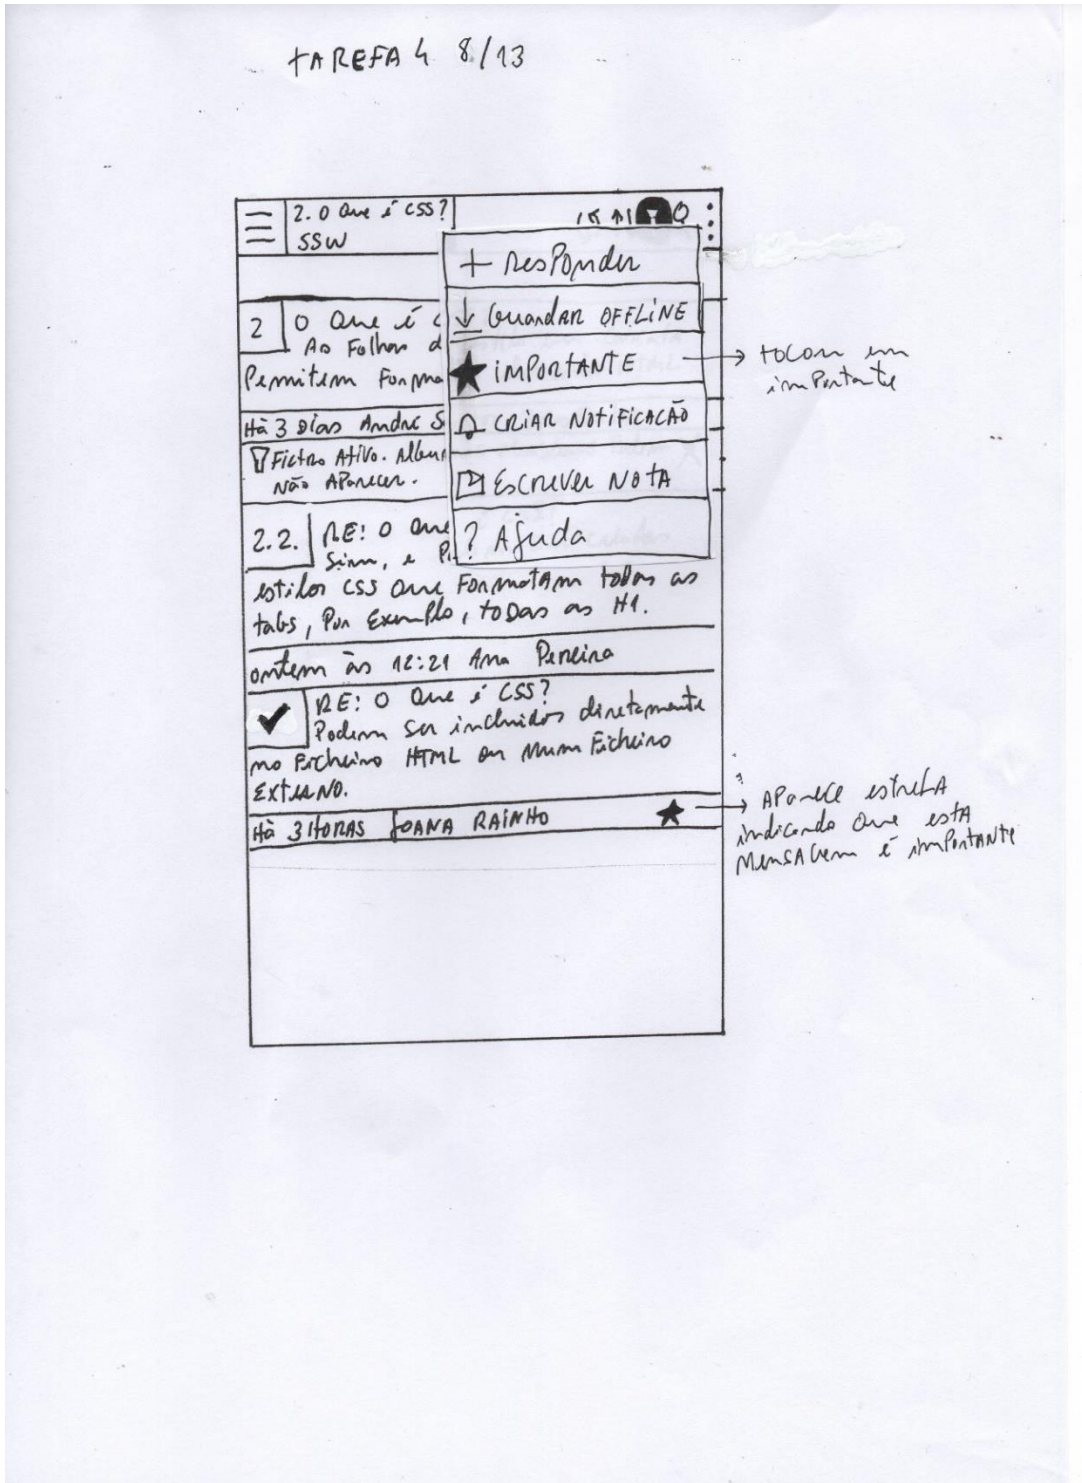 TAREFA 4 8/13
2. O Que é CSS?
SSW
+ Responder
Guardar OFFLINE
IMPORTANTE
CRIAR NOTIFICAÇÃO
Escrever NOTA
? Ajuda
→ tocar em
importante
2 O Que é
As Folhas d
Permitem Forma
Há 3 Dias André S
Filtro Ativo. Algun
Não Aparecer.
2.2. RE: O que
Sim, e
estilos CSS Que Formatam todas as
tags, Por Exemplo, todas as H1.
ontem às 12:21 Ana Pereira
✓ RE: O Que é CSS?
Podem ser incluídos diretamente
no Ficheiro HTML ou Num Ficheiro
EXTERNO.
Há 3 HORAS JOANA RAINHO ★
→ Aparece estrela
indicando Que esta
Mensagem é importante